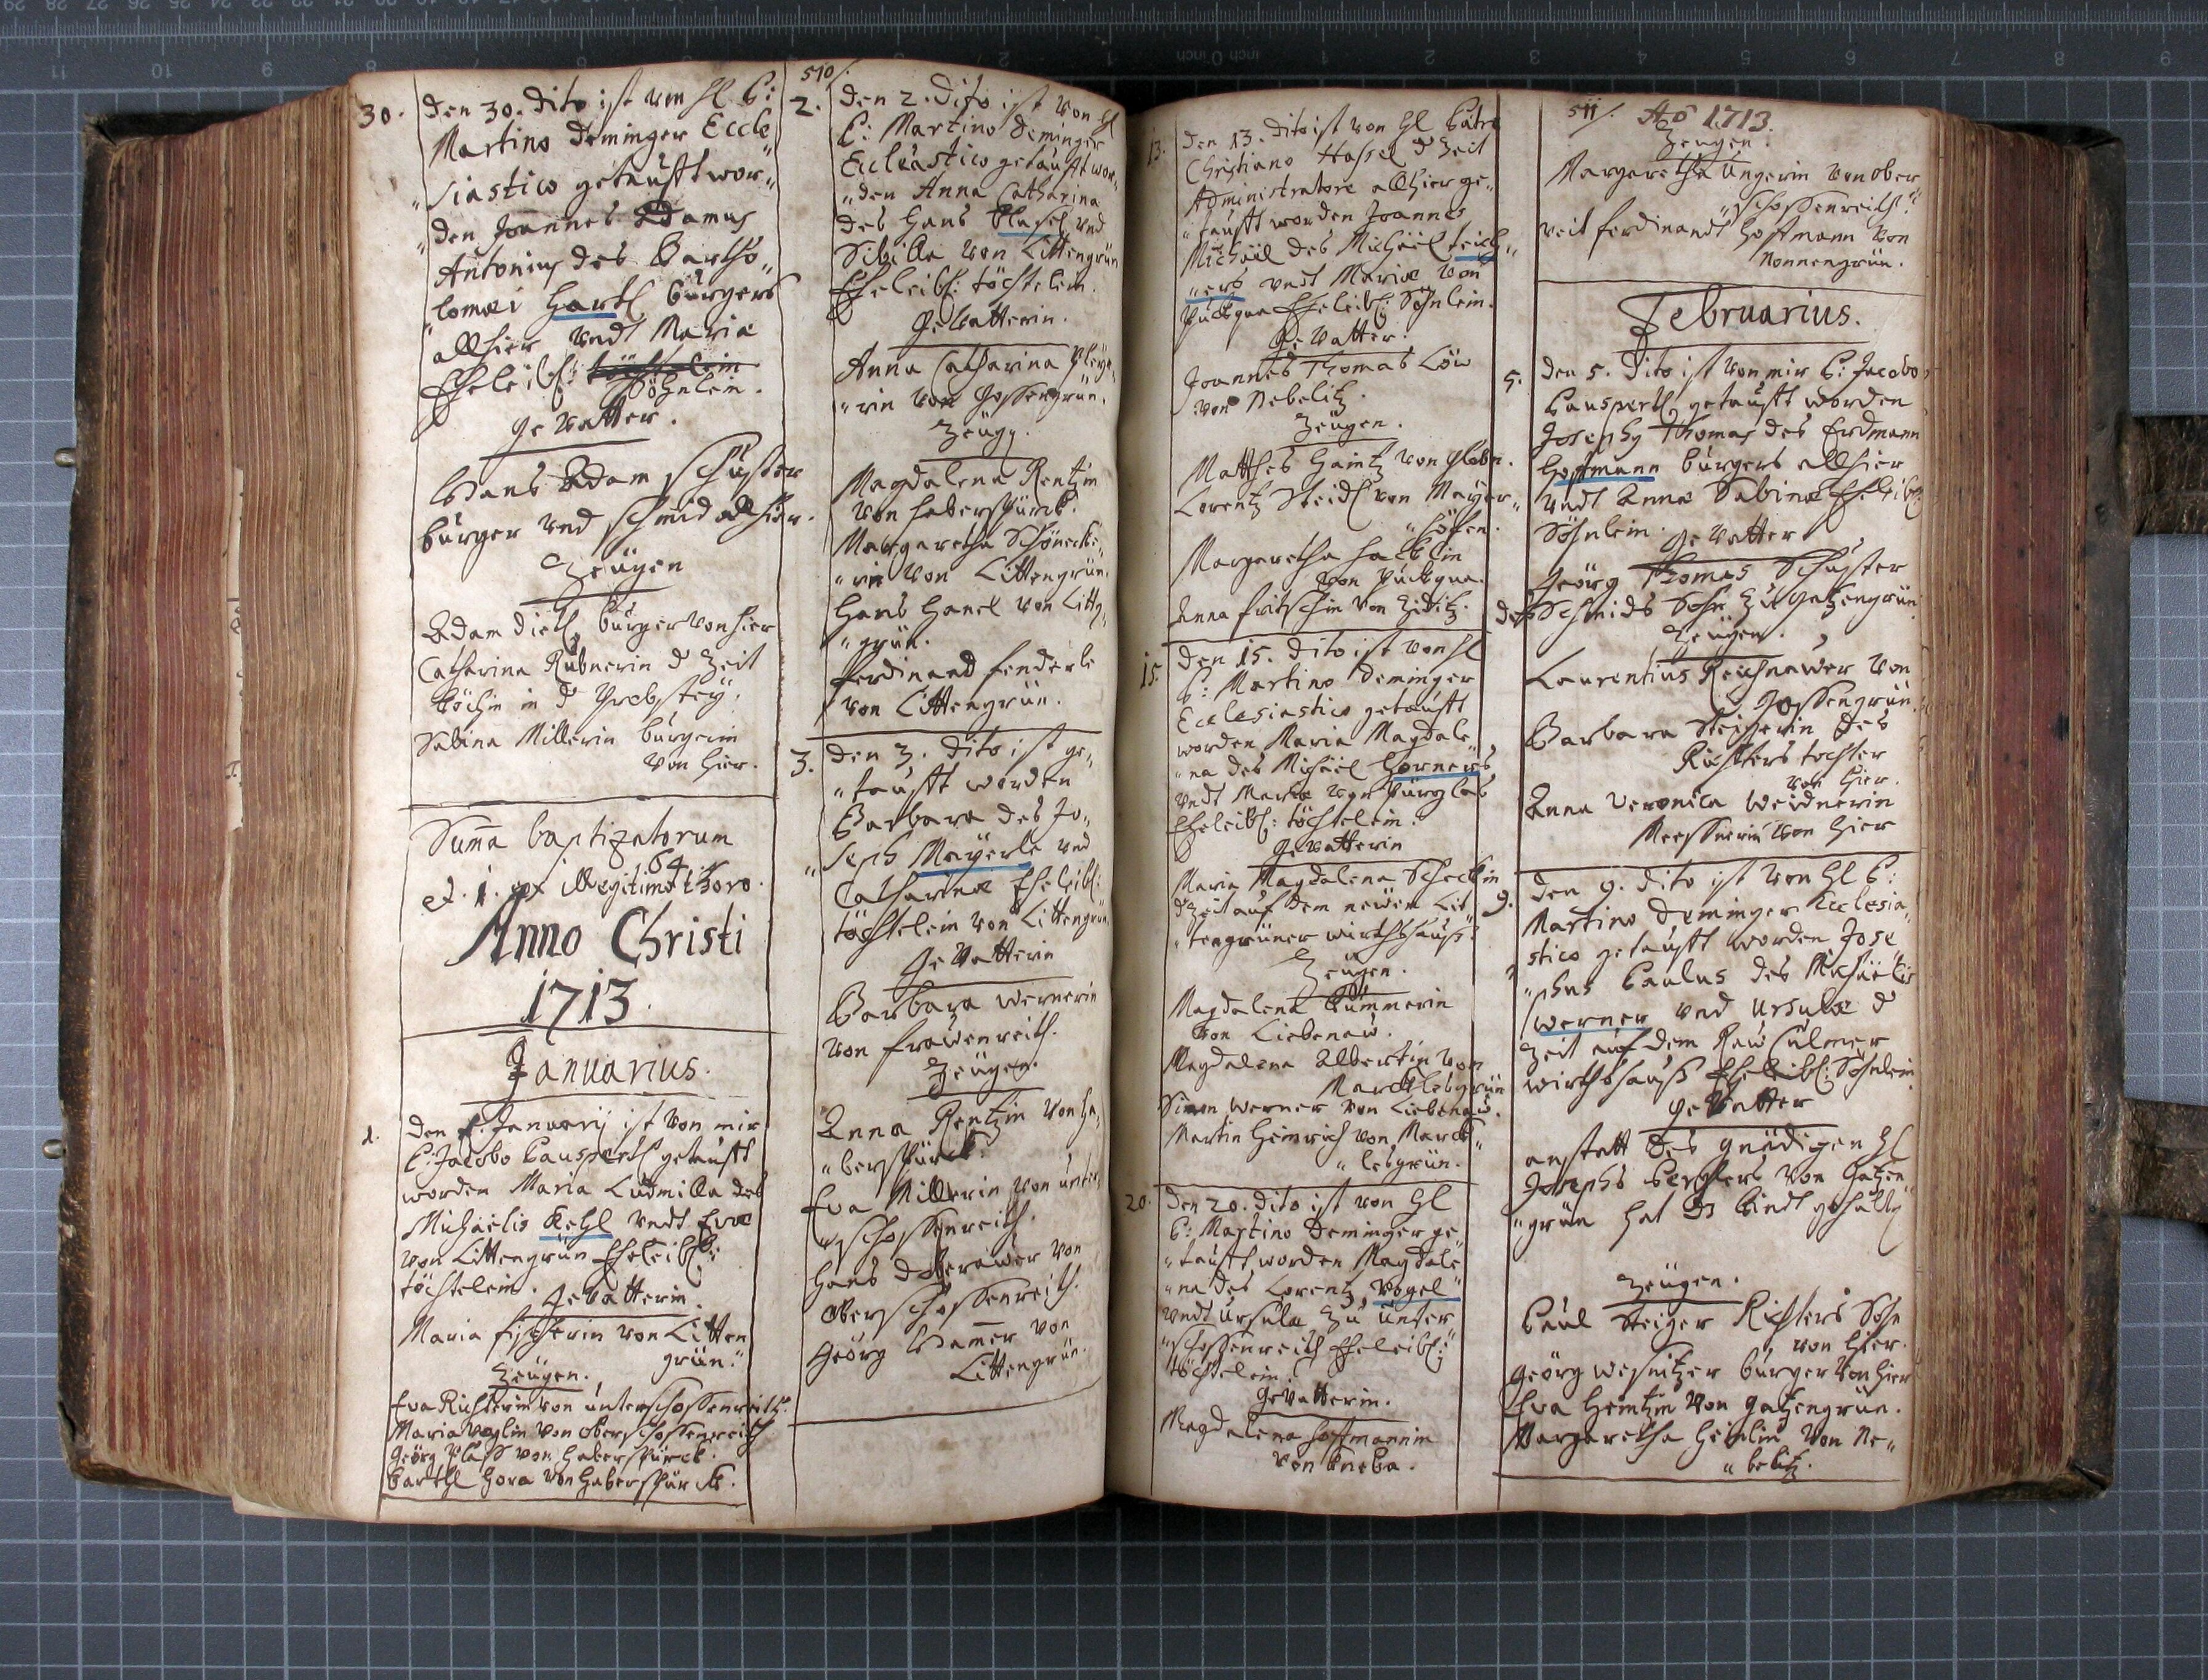 510/.
30. den 30. dito ist von Hl P:
Martino Deminger Eccle„
„siastico getaufft wor„
„den Joannes Adamus
Antonius des Bartho„
„lomæi Hartl Bürgers
allhier undt Maria
Eheleibl: töchtelein
Söhnlein.
Gevatter.
Hans Adam Schuster
bürger und schmid allhier.
Zeügen
Adam Dietl bürger von hier
Catharina Rübnerin d Zeit
köchin in d Probstey.
Sabina Millerin bürgerin
von hier.
Summa baptizatorum
64.
et .1. ex illegitimo thoro.
Anno Christi
1713.
Januarius.
1. den 1. Januarij ist von mir
P: Jacobo Pauspertl getaufft
worden Maria Ludmilla des
Michaelis Kehl undt Evæ
von Littengrün Eheleibl:
töchtelein.
Gevatterin.
Maria Fischerin von Litten
grün.
Zeügen.
Eva Richterin von unterschossenreith.
Maria Voglin von oberschossenreith
Geörg Plass von Haberspürck.
Barthl Hora von Haberspürck.
2. den 2. dito ist von Hl
P: Martino Deminger
Eccleastico getaufft wor„
„den Anna Catharina
des Hans Plasel und
Sibilla von Littengrün
Eheleibl: töchtelein.
Gevatterin.
Anna Catharina
„rin von Gossengrün.
Zeügg.
Magdalena Rentzin
von Haberspürck.
Margaretha Schönecke„
„rin von Littengrün.
Hans Hanel von Litty„
„grün.
Ferdinand Fenderle
von Littengrün.
3. den 3. dito ist ge„
„taufft worden
Barbara des Jo„
„seph Mayerle und
Catharinæ Eheleibl:
töchtelein von Littengrün.
Gevatterin
Barbara Wernerin
von Frawenreith.
Zeügen.
Anna Rentzin von Ha„
„berspürck.
Eva Millerin von unter„
„schossenreith.
Hans von
oberschossenreith.
Geörg Hammer von
Littengrün.
13. den 13. dito ist von Hl Patre
Christiano Hassel d Zeit
Administratore allhier ge„
„taufft worden Joannes
Michael des Michäel Teich„
„ers undt Mariæ von
Puckqua Eheleibl: Söhnlein.
Gevatter.
Joannes Thomas Löw
von Nebelitz.
Zeügen.
Matthes Haintz von
Lorentz Steidl von Mayer„
„höfen.
Margaretha
von Puckqua.
Anna Fritschin von Ziditz.
15. den 15. dito ist von Hl
P: Martino Deminger
Ecclesiastico getaufft
worden Maria Magdale„
„na des Michäel Horners
undt Mariæ von Pürglas
Eheleibl: töchtelein.
Gevatterin
Maria Magdalena Scheckin
d Zeit auf dem newen Lit„
„tengrüner wirthshauss.
Zeügen.
Magdalena Kummerin
von Liebenaw.
Magdalena Albertin von
Marcklesgrün
Simon Werner von Liebenaw.
Martin Heinrich von Marck„
„lesgrün.
20. den 20. dito ist von Hl
P: Martino Deminger ge„
„taufft worden Magdale„
„na des Lorentz Vogel
undt Ursulæ zu unter
„schossenreith Eheleibl:
töchtelein.
Gevatterin.
Magdalena Hoffmannin
von Kneba.
511/. Aō 1713.
Zeügen.
Margaretha Ungerin von ober
„schossenreith.
Veit Ferdinandt Hoffmann von
Nonnengrün.
Februarius.
5. den 5. dito ist von mir P: Jacobo
Pauspertl getaufft worden
Josephg Thomas des Erdmann
Hoffmann bürgers allhier
undt Annæ Sabinæ Eheleibl:
Söhnlein.
Gevatter
Geörg Thomas Schuster
des Schmids Sohn zu Gatzengrün
Zeügen.
Laurentius Reichnawer von
Gossengrün.
Barbara Steigerin des
Richters tochter
von hier.
Anna Veronica Weidnerin
Messnerin von hier
9. den 9. dito ist von Hl P:
Martino Deminger Ecclesia„
stico getaufft worden Jose„
„phus Paulus des Michäelis
Werner und Ursulæ d
Zeit auf dem
wirthshauss Eheleibl: Söhnlein.
Gevatter
anstatt des gnädigen Hl
Josephs von Gatzen„
„grün hat Kindt gehalty
Zeügen.
Paul Steiger Richters Sohn
von hier.
Geörg Wesnitzer bürger von hier
Eva Heintzin von Gatzengrün.
Margaretha von Ne„
„belitz.